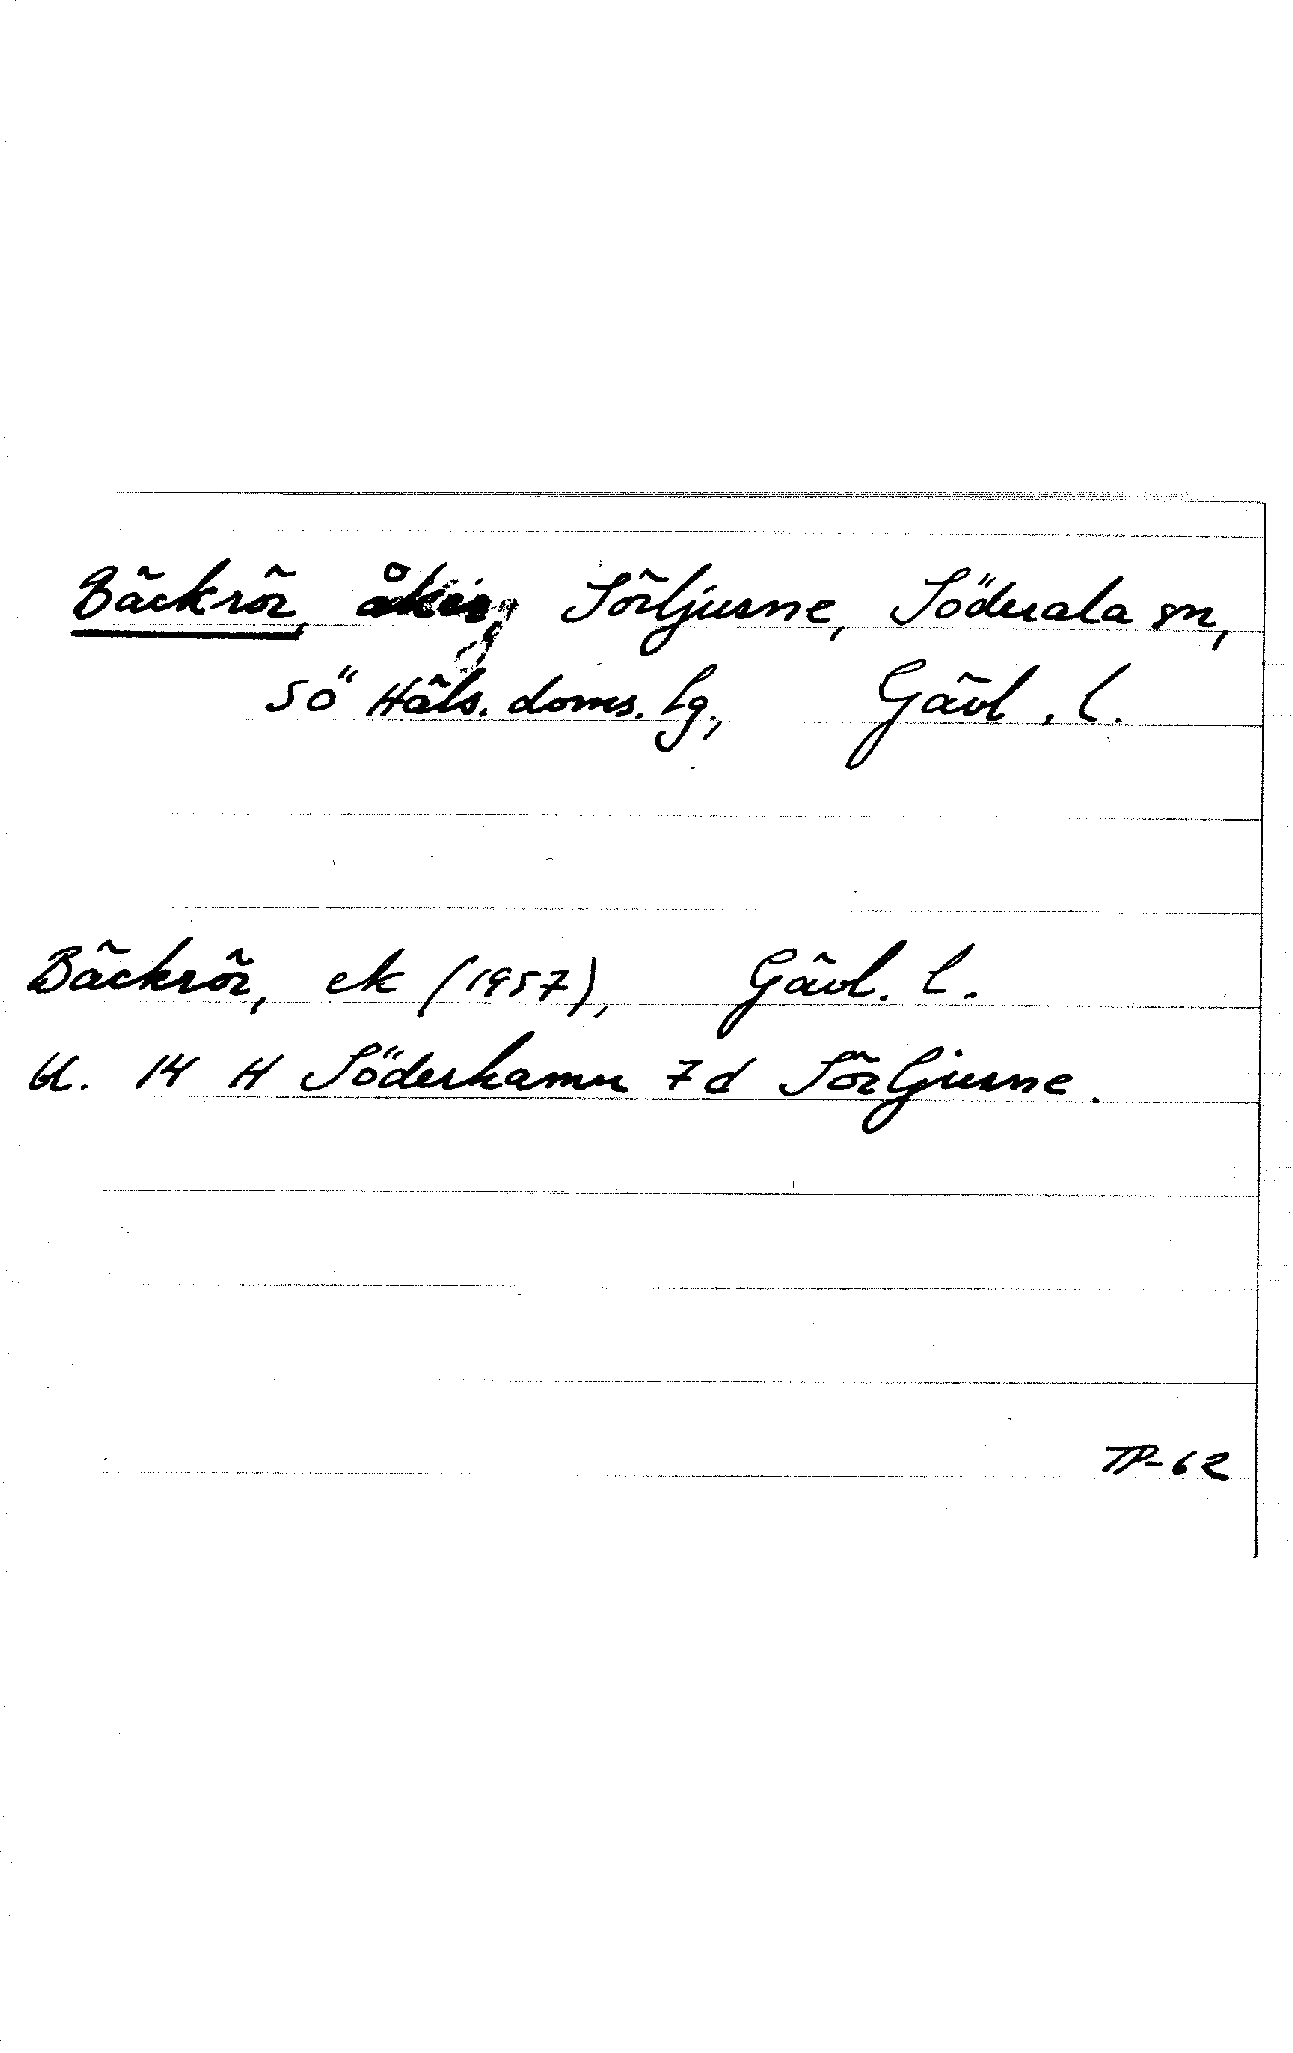 Bäckrör, åker, Sörljusne, Söderala sn,
Sö Häls. doms. lg, Gävl. l.
Bäckrör, ek (1957), Gävl. l.
bl. 14 H Söderhamn 7d Sörljusne.
TP-62